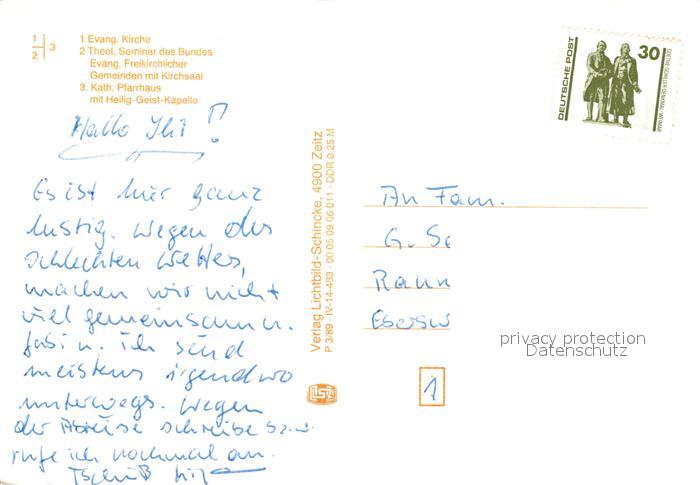 1 Evang. Kirche
2 Theol. Seminar des Bundes
Evang. Freikirchlicher
Gemeinden mit Kirchsaal
3. Kath. Pfarrhaus
mit Heilig-Geist-Kapelle
1
2
3
Hallo Ihr!
Es ist hier ganz
lustig. Wegen des
schlechten Wetters,
machen wir nicht
viel gemeinsam u.
u. ich sind
meistens irgendwo
unterwegs. Wegen
der Abreise schreibe bzw.
rufe ich nochmal an.
Tschüß
Verlag Lichtbild-Schincke, 4900 Zeitz
P 3/89 · IV-14-483 · 00 05 09 06 011 · DDR 0,25 M
DEUTSCHE POST
30
GOETHE-SCHILLER-DENKMAL WEIMAR
An Fam.
G. Sc
Ebersw
1
privacy protection
Datenschutz